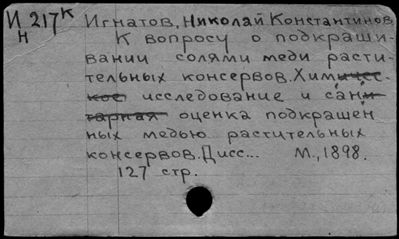 И 217К Игнатов, Николай Константинов.
Н К вопросу о подкраши-
вании солями меди расти-
тельных консервов. Химичес-
кое исследование и сани-
тарная оценка подкрашен
ных медью растительных
консервов. Дисс... М., 1898.
127 стр.